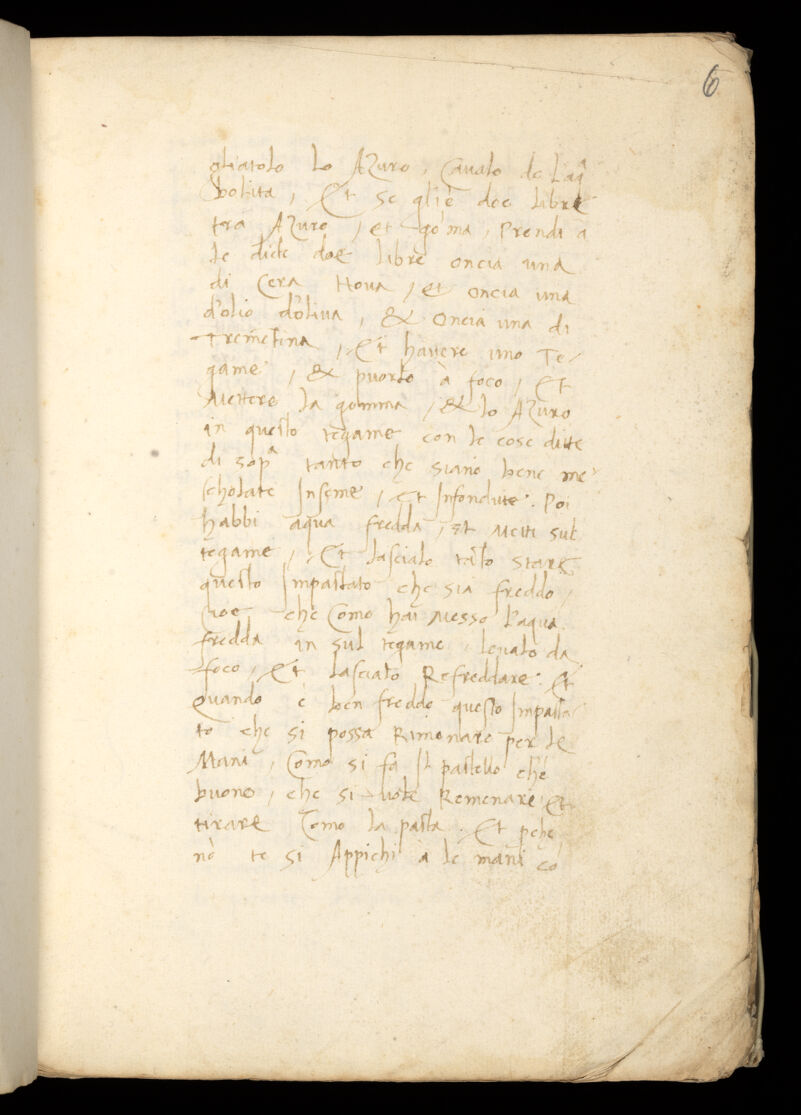 6
gliatolo lo Azuro, Cavalo de l'aqª
bolita, Et se gliè doe libre
tra Azuro, et gõma, Prendi a
le dicte doe libre oncia una
di Cera Nova, et oncia una
d'olio d'oliva, & oncia una di
Tremẽtina, Et havere uno Te-
game, & puorlo à foco, Et
Mettere la gomma, & lo Azuro
in questo tegame con le cose ditte
di sopª tanto che siano bene me-
scholate Inseme, et Infondute. Poi
habbi aqua fredda, et Metti sul
tegame, Et lascialo tãto stare
questo Impastato che sia freddo,
Cioe che Como hai Messo l'aqua
fredda in sul tegame, levalo da
foco, Et lascialo Refreddare. Et
Quando è ben freddo questo Impasta
to che si possa Rimenare per le
Mani, Como si fa Il pastello ch'è
buono, che si vole Remenare et
tirare Como la pasta. Et pche
nõ te si Appichi à le mani cõ